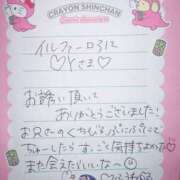 CRAYON SHINCHAN
イルファーロ312
♡Yさま♡
お誘い頂いて
ありがとうございました!
お兄さんのくちびるぷにぷにで
ちゅーしたらすごく気持ちよかった♡
また会えたらいいな〜